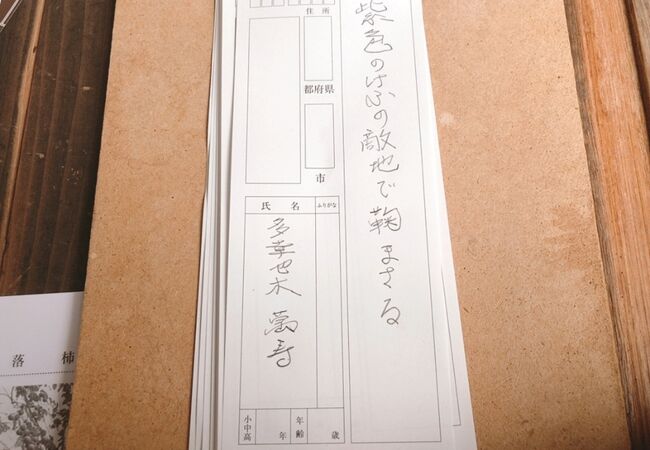 紫色のけふの敵地で鞠まさる
住所
都府県
市
氏名
ふりがな
多幸也木 萬寿
小中高
年
年齢
歳
落柿